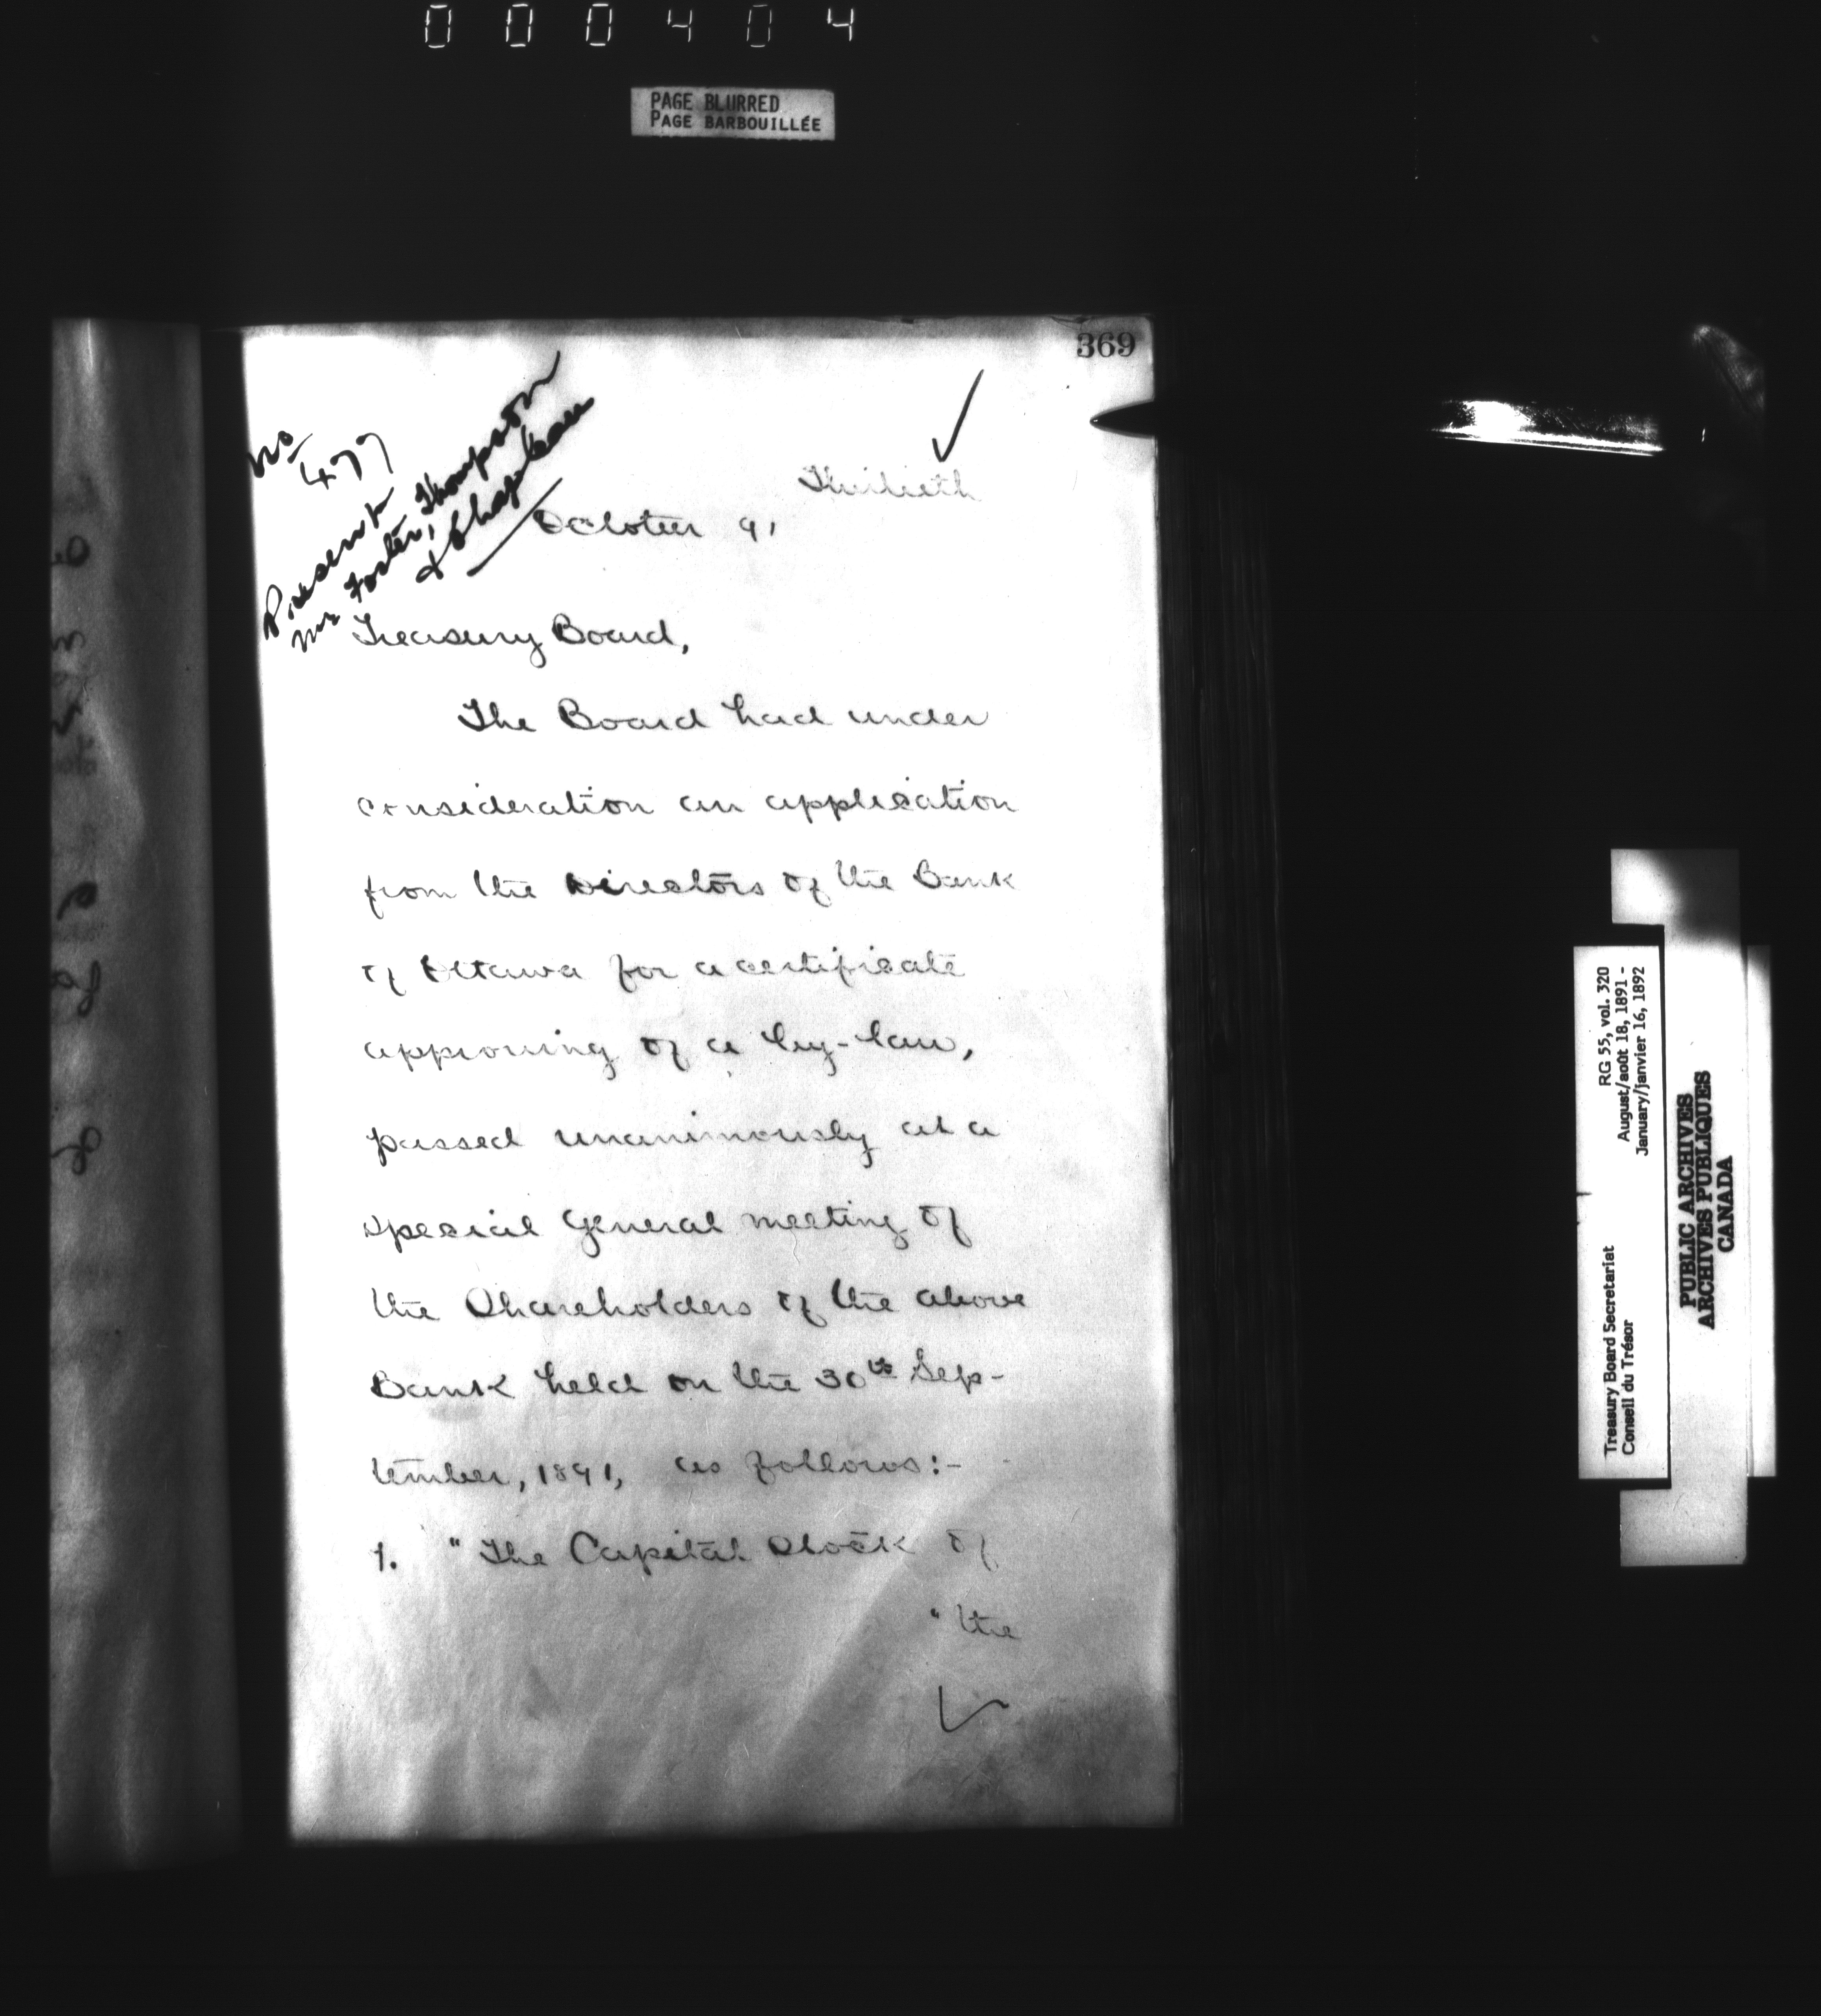 000404
PAGE BLURRED
PAGE BARBOUILLÉE
369
No
477
Present
Mrs Foster, Thompson
& Chapleau
Thirtieth
October 91
Treasury Board,
The Board had under
consideration an application
from the Directors of the Bank
of Ottawa for a certificate
approving of a by-law,
passed unanimously at a
Special General meeting of
the Shareholders of the above
Bank held on the 30th Sep-
tember, 1891, as follows:-
1. "The Capital Stock of
"the
RG 55, vol. 320
August/août 18, 1891 -
January/janvier 16, 1892
Treasury Board Secretariat
Conseil du Trésor
PUBLIC ARCHIVES
ARCHIVES PUBLIQUES
CANADA